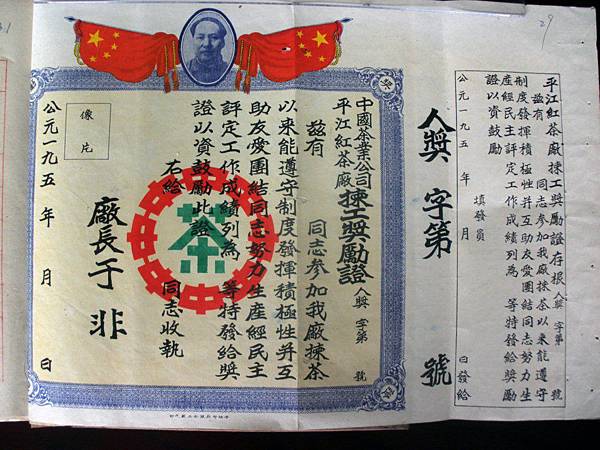 29
平江紅茶廠揀工獎勵證存根 人獎 字第 號
茲有 同志參加我廠揀茶以來能遵守
制度發揮積極性并互助友愛團結同志努力生
產經民主評定工作成績列為 等特發給獎勵
證以資鼓勵
填發員
公元一九五 年 月 日發給
人獎 字第 號
中國茶業公司
平江紅茶廠
揀工獎勵證
人獎 字第 號
茲有 同志參加我廠揀茶
以來能遵守制度發揮積極性并互
助友愛團結同志努力生產經民主
評定工作成績列為 等特發給獎
證以資鼓勵此證
右給 同志收執
廠長于非
像片
公元一九五 年 月 日
茶